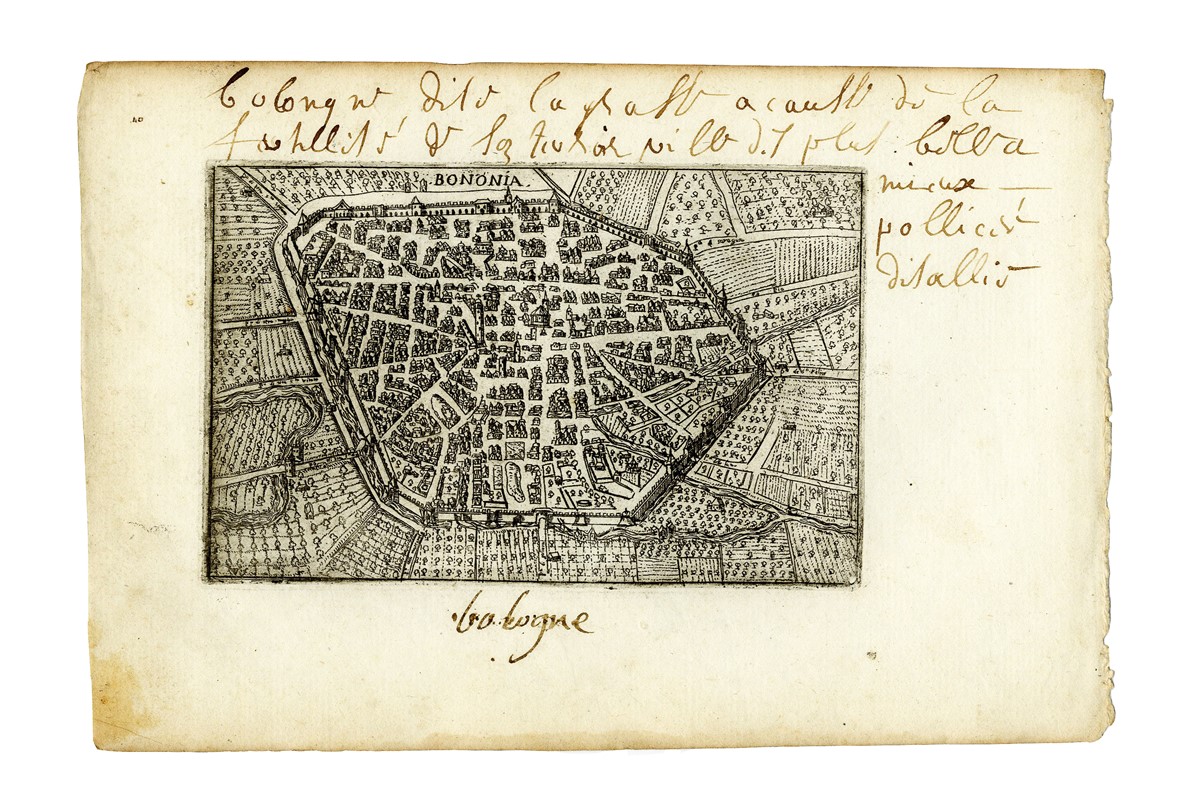 bolongne dite la grasse a cause de la
fertillité & la ville des plus belle
mieux
pollicée
ditallie
BONONIA.
bologne